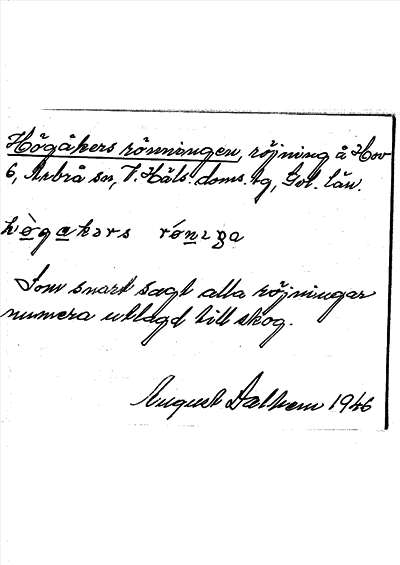 Högåkers rönningen, röjning å Hov
6, Arbrå sn, V. Häls. doms. tg, Gvl. län.
hògakərs rónıga
Som snart sagt alla röjningar
numera utlagd till skog.
August Dalhem 1946